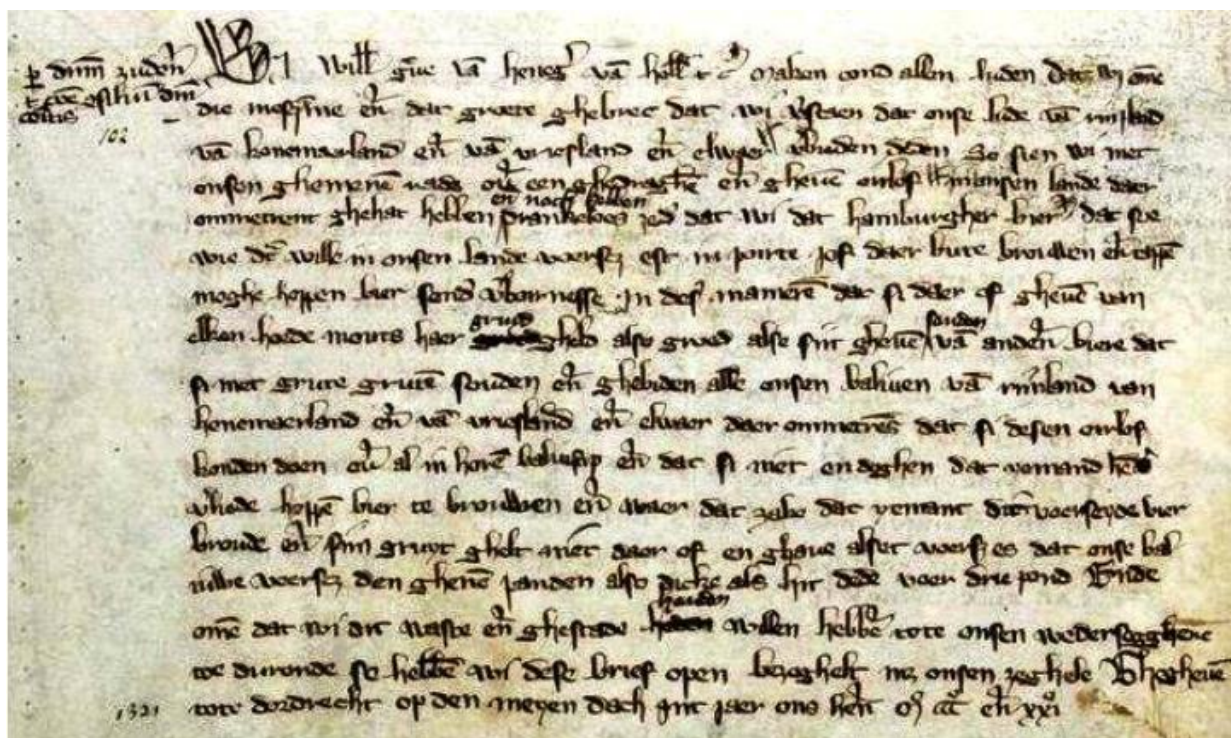 p dnm zuden
comitis
102
Wi Will gue va heneg va holl maken cond allen luden dat wi ome
die en dat groete ghebrec dat wi v'staen dat onse lude va rinland
va kenemaerland en va vriesland en elwaer So sien wi met
onsen ghemenen rade een ghedraghe en gheue orlof in onsen lande daer
en noch hebben
ommetrent ghehat hebben dat wi dat hamburgher bier dat sie
wie dat wille in onsen lande voersz est in poirte jof daer bute brouwen en
moghe hoppen bier sond v'boirnesse In deser maniere dat si daer of gheue van
gruut
elken hoede mouts haer ghelt also groed alse sijt gheue va andren biere dat
souden
si met grute gruten souden en ghebieden alle onsen baliuen va rinland van
kenemaerland en va vriesland en elwaer daer ommetrent dat si desen orlof
konden doen al in hore baliuscip en dat si niet en doghen dat yemand
hoppe bier te brouwen en waer dat zake dat yemant dit voerseyde bier
broude en sijn gruyt ghelt niet daer of en ghaue alset voersz es dat onse bal
iuwe voersz den ghenen panden also dicke als hijt dede voer drie pond Ende
houden
ome dat wi dit vaste en ghestade willen hebben tote onsen wedersegghene
toe durende so hebben wi dese brief open bezeghelt met onsen zeghele Ghegheuen
1321
tote dordrecht op den meyen dach int jaer ons heren en xxi